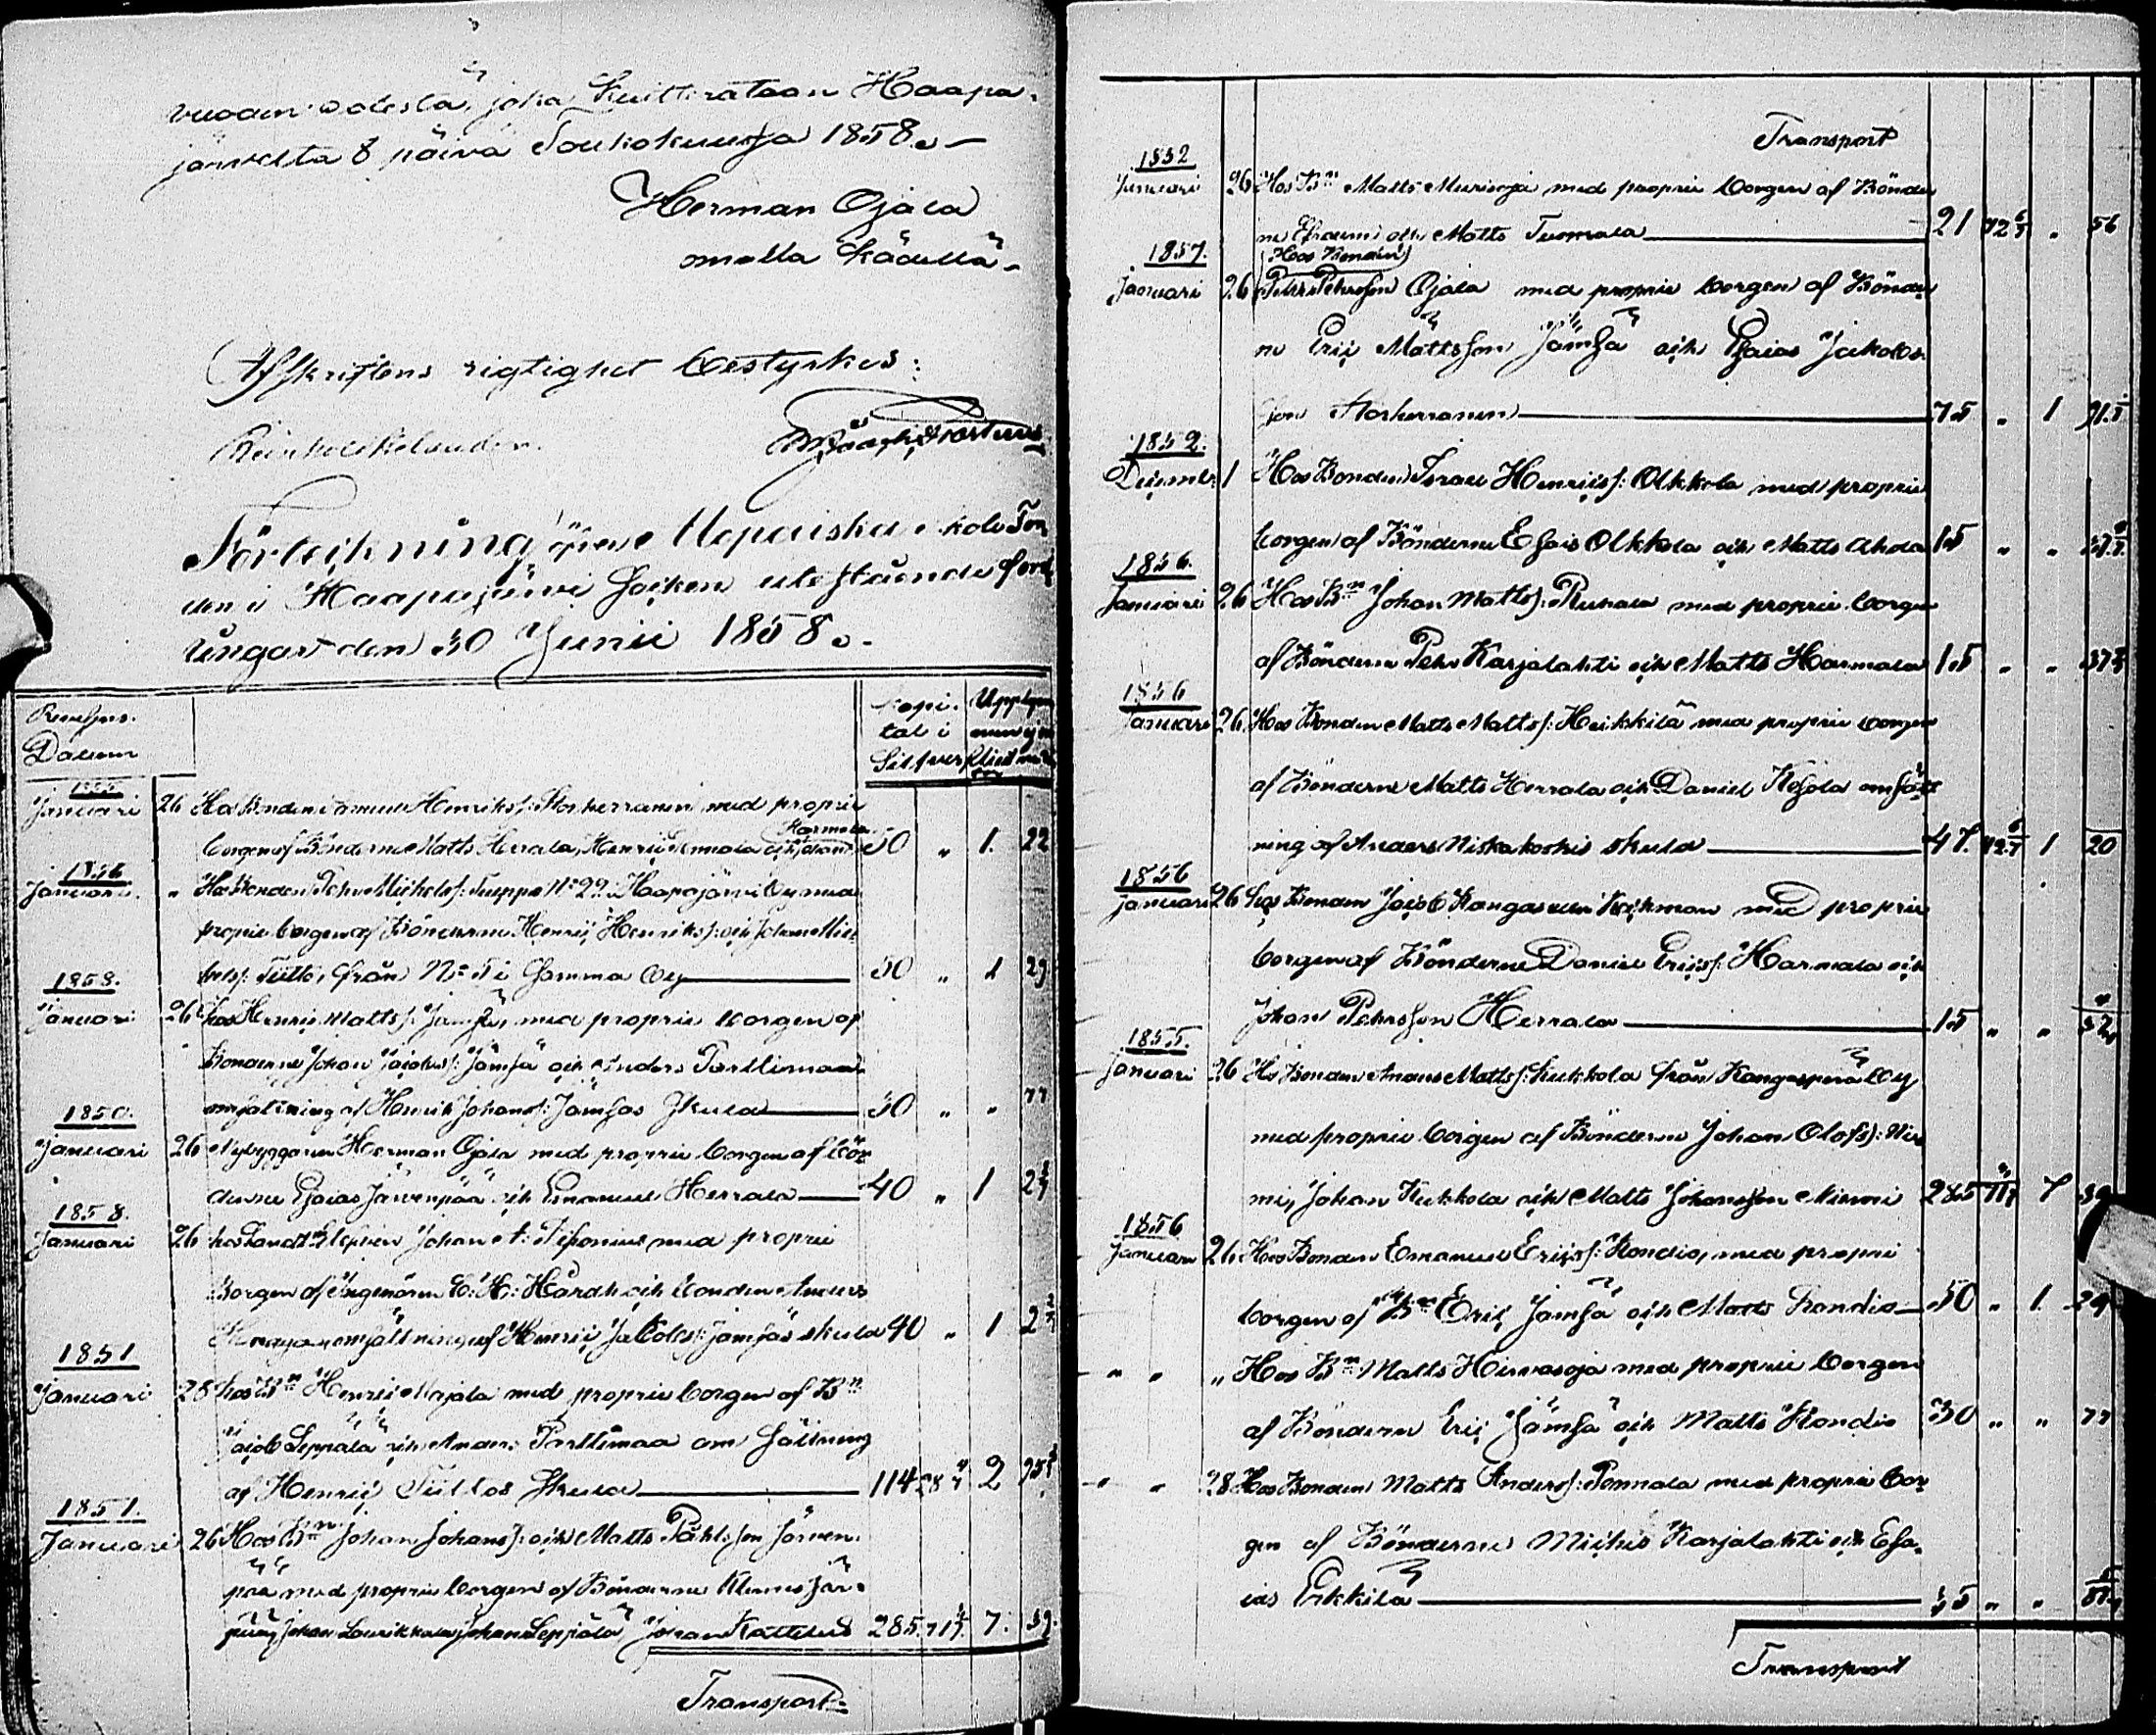 vuoden edestä, joka Kuitterataan Haapa-
järveltä 8 päivä Toukokuussa 1858.
Herman Ojala
omalla kädellä
Afskriftens rigtighet bestyrkes:
Förteckning öfver skola Fon
den i Haapajärvi Socken utestående ford
ringar den 30 Junii 1858.
Datum
Kapi-
tal i
Silfver
Januari 26 Hos Bonden Henriks: Storkerranen med proprie
Harmala
borgen af Bönderne Matts Herrala, Henric och 50 " 1. 22
1856
Januari " Hos Bonden Pehr Michels: No 22 i Haapajärvi by med
proprie borgen af Bönderne Henric Henriks: och Johan Mic
hels: Tiitto, från No 5 i samma by 50 " 1 29
1858.
Januari 26 hos Henric Matts: Jämsä, med proprie borgen af
Bönderne Johan Jacobs: Jämsä och Anders Parttimaa
omsättning af Henrik Johans: Jämsäs skuld 30 " " 77
1850.
Januari 26 Nybyggaren Herman Ojala med proprie borgen af Bön
derne Esaias Järvenpää och Emanuel Herrala 40 " 1 2 2/7
1858.
Januari 26 hos Johan A: med proprie
Borgen af Ingeniören C: H: Hårdh och bonden Anders
omsättning af Henric Jakobs: Jämsäs skuld 40 " 1 2 2/7
1851
Januari 28 hos Bn Henric Marjala med proprie borgen af Bn
Jacob Leppälä och Anders Parttimaa om sättning
af Henric Tiittos skuld 114 28 4/7 2 25
1857.
Januari 26 Hos Bn Johan Johans: och Matts Påhlsson Järven
pää med proprie borgen af Bönderne Klemet Jär-
Johan Laurikkala Johan Leppälä Johan Kattelus 285. 71 7. 39.
Transport
Transport
1852
Januari 26 Hos Bn Matts med proprie borgen af Bönder
ne Efraim och Matts Tuomala 21 42 6/7 " 56
1857. Hos Bonden
Januari 26 Petter Pehrsson Ojala med proprie borgen af Bönder
ne Eric Mattsson Jämsä och Esaias Jakobs-
son Storkerranen 75 " 1 91
1852.
December 1 Hos Bonden Israel Henrics: Olkkola med proprie
borgen af Bönderne Esais Olkkola och Matts Ahola 15 " "
1856.
Januari 26 Hos Bn Johan Matts: Ruhala med proprie borgen
af Bönderne Pehr Karjalahti och Matts Harmala 15 " "
1856
Januari 26. Hos Bonden Matts Matts: Heikkilä med proprie borgen
af Bönderne Matts Herrala och Daniel omsätt
ning af Anders Niskakoskis skuld 47. 42 6/7 1 20
1856
Januari 26 hos Bonden Jacob Kangas med proprie
borgen af Bönderne Daniel Erics: Harmala och
Johan Pehrsson Herrala 15 " "
1855.
Januari 26 Hos Bonden Anders Matts: Kukkola från Kangasperä by
med proprie borgen af Bönderne Johan Olofs: Nie
mi, Johan Kukkola och Matts Johansson Niemi 285 71 7 39
1856
Januari 26 Hos Bonden Emanuel Erics: Kondio, med proprie
borgen af Bn Eric Jämsä och Matts Kondio 50 " 1. 29
" " " Hos Bn Matts Hirvasoja med proprie borgen
af Bönderne Eric Jämsä och Matts Kondio 30 " " 77
" " 28 Hos Bonden Matts Anders: Ponnala med proprie bor
gen af Bönderne Michel Karjalahti och Esa-
ias Erkkilä " "
Transport